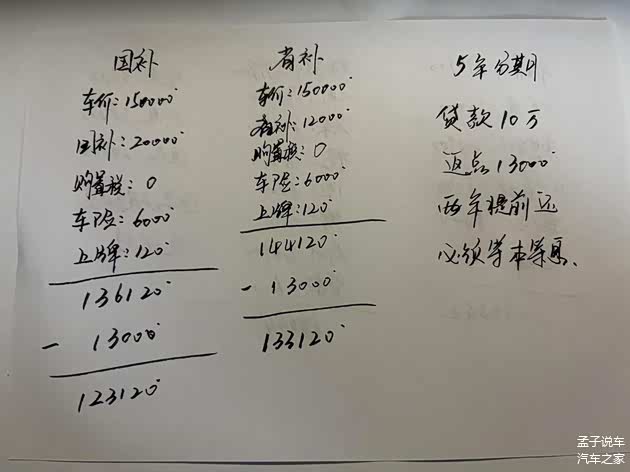 国补
车价:150000
国补:20000
购置税:0
车险:6000
上牌:120
136120
- 13000
123120
省补
车价:150000
省补:12000
购置税:0
车险:6000
上牌:120
144120
- 13000
133120
5年分期
贷款10万
返点13000
两年提前还
必须等本等息、
孟子说车
汽车之家